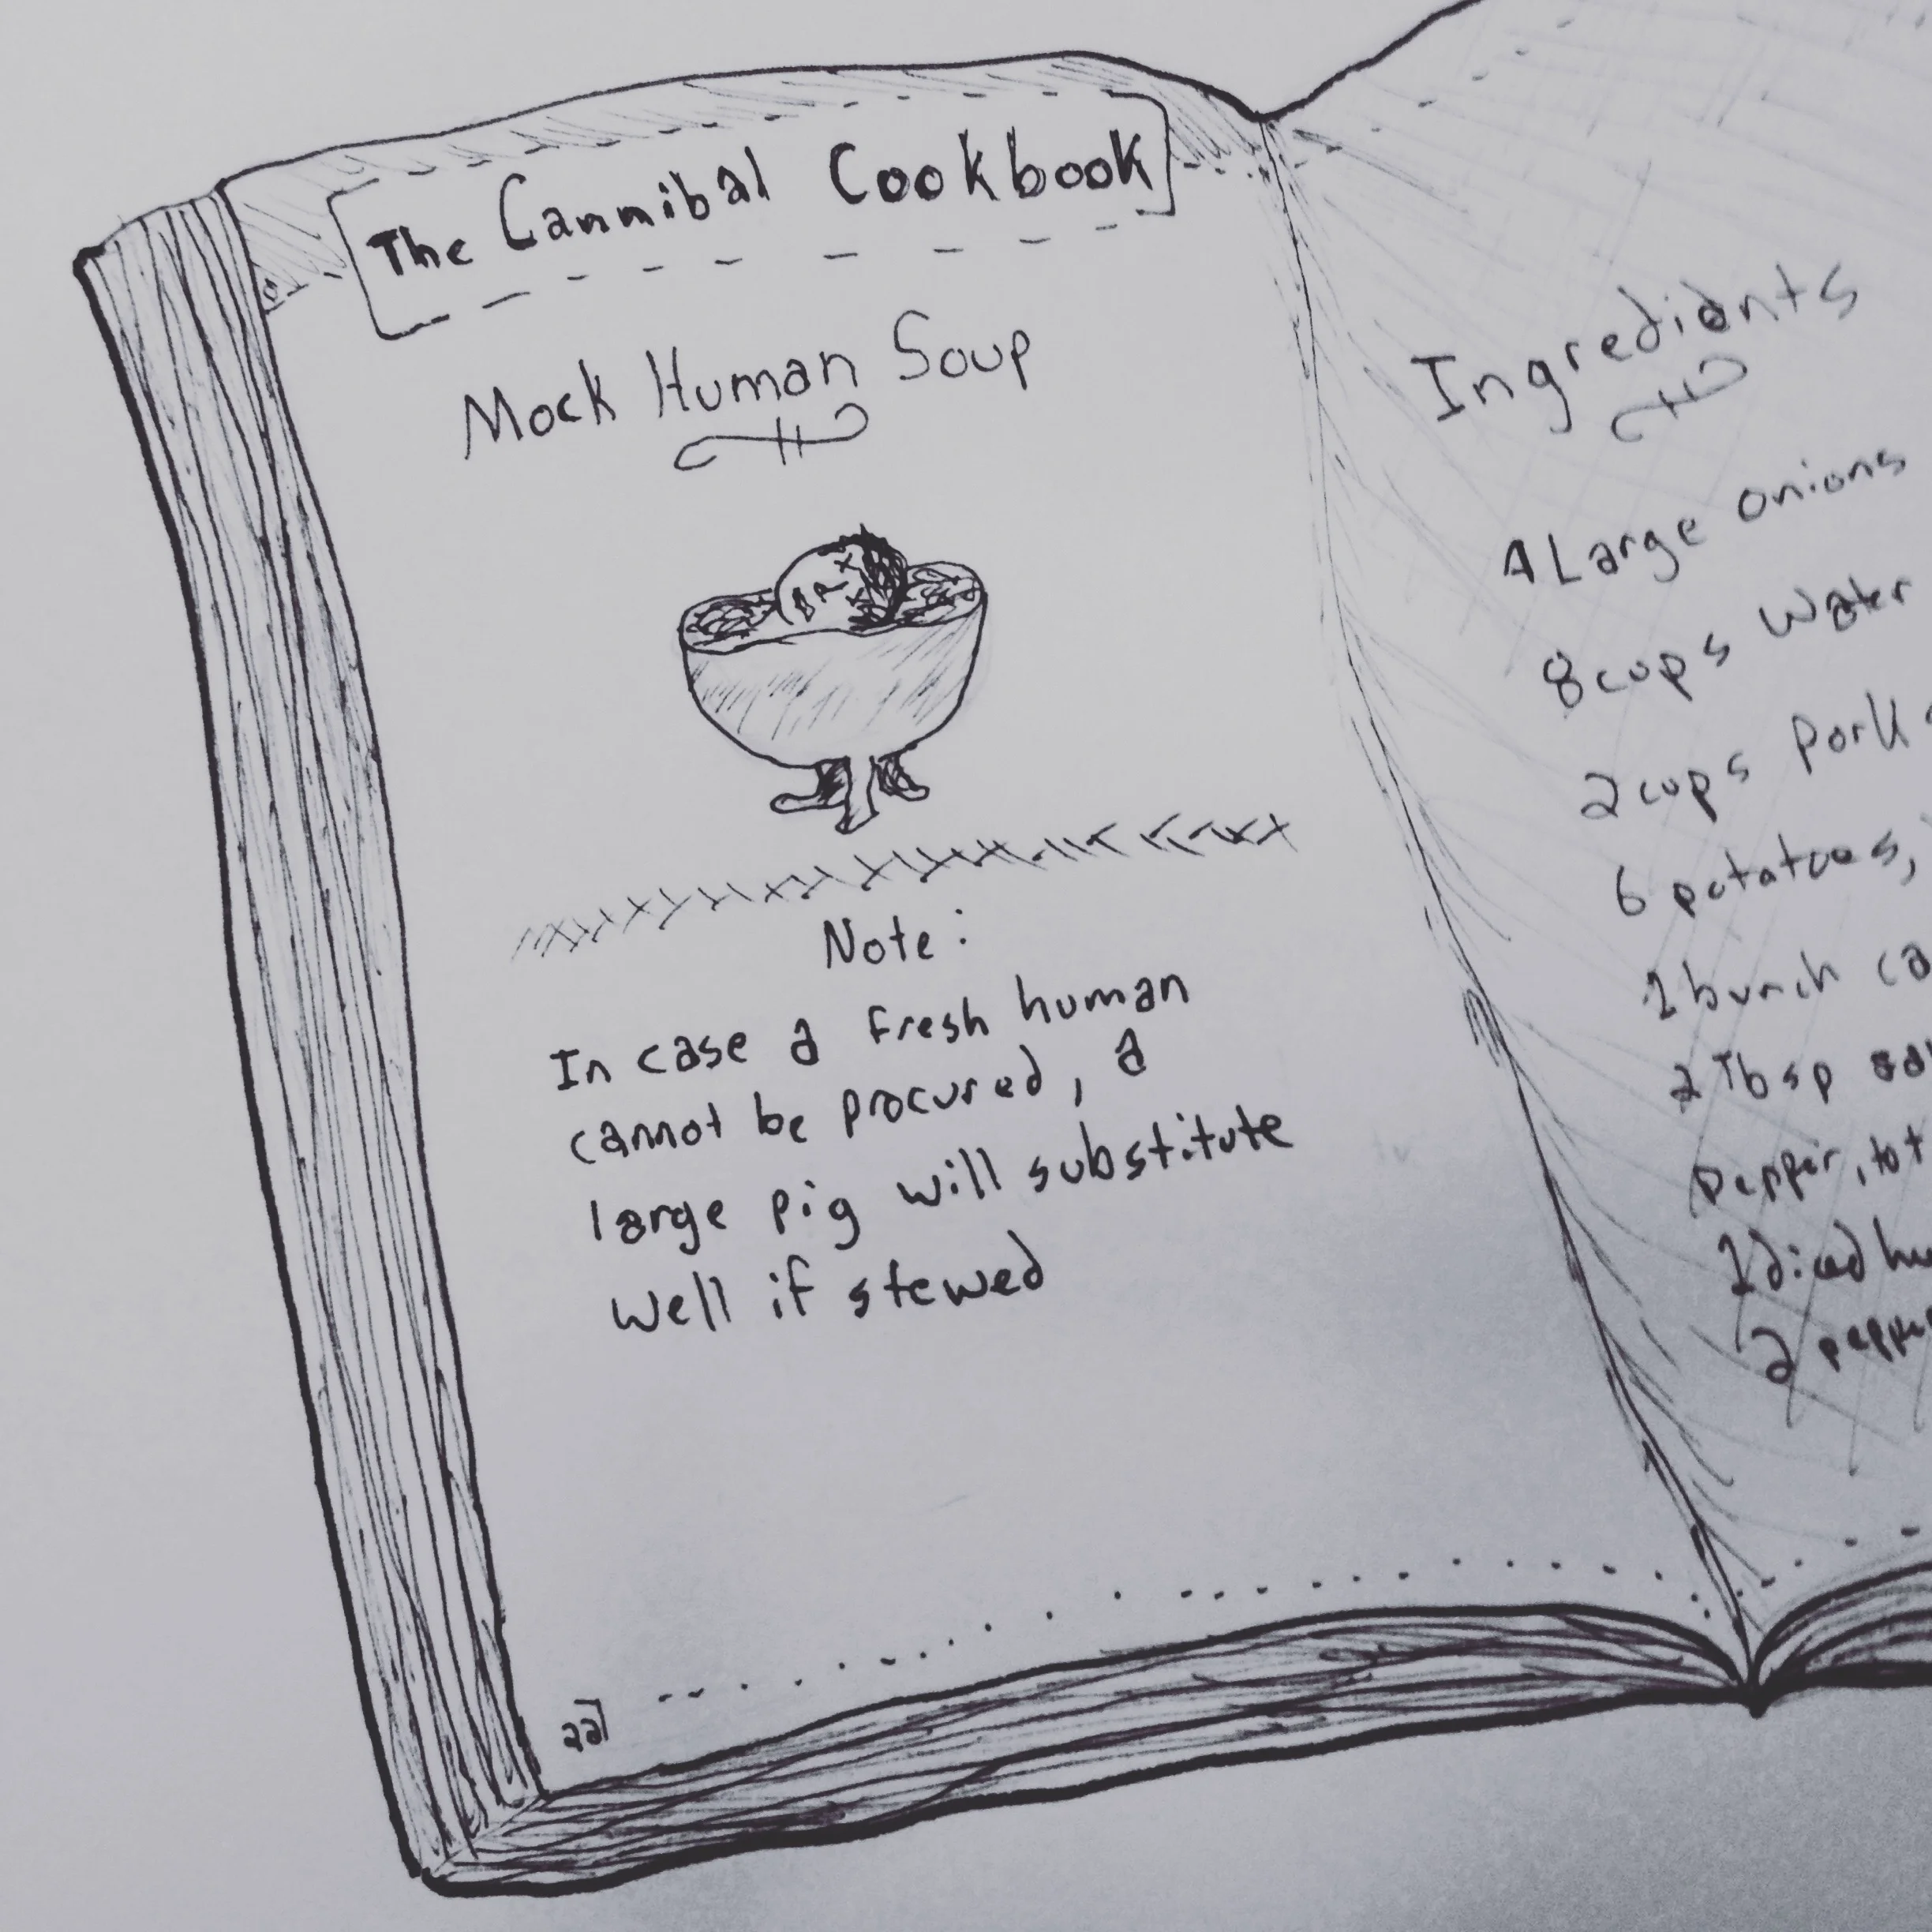 The Cannibal Cookbook
Mock Human Soup
Note:
In case a fresh human
cannot be procured, a
large pig will substitute
well if stewed
Ingrediants
4 Large onions
8 cups water
2 cups Pork
6 potatoes,
1 bunch
2 Tbsp
pepper,
1 diced
2